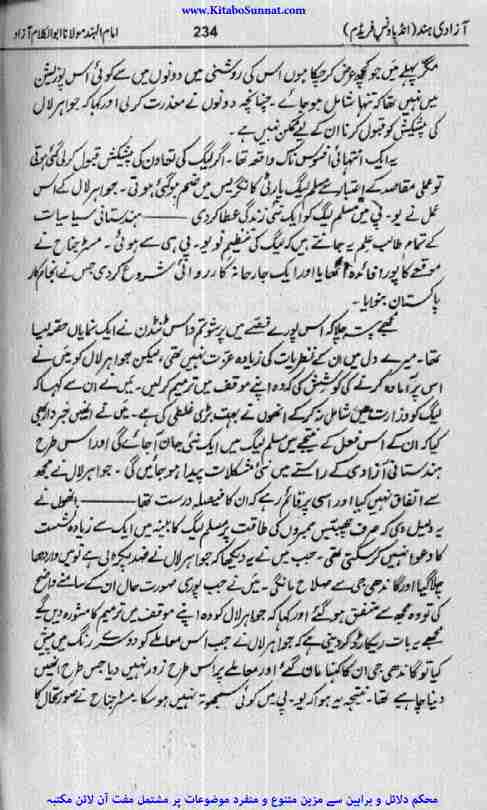 www.KitaboSunnat.com
آزادی ہند (انڈیا ونس فریڈم) 234 امام الہند مولانا ابوالکلام آزاد
مگر پہلے میں جو کچھ عرض کر چکا ہوں اس کی روشنی میں دونوں میں سے کوئی اس پوزیشن
میں نہیں تھا کہ تنہا شامل ہو جائے۔ چنانچہ دونوں نے معذرت کر لی اور کہا کہ جواہر لال
کی پیشکش کو قبول کرنا ان کے لیے ممکن نہیں ہے۔
یہ ایک انتہائی افسوس ناک واقعہ تھا۔ اگر لیگ کی تعاون کی پیشکش قبول کر لی گئی ہوتی
تو عملی مقاصد کے اعتبار سے مسلم لیگ پارٹی کانگریس میں ضم ہو گئی ہوتی۔ جواہر لال کے اس
عمل نے یو۔ پی میں مسلم لیگ کو ایک نئی زندگی عطا کر دی ——— ہندستانی سیاسیات
کے تمام طالب علم یہ جانتے ہیں کہ لیگ کی تنظیم نو یو۔ پی ہی سے ہوئی۔ مسٹر جناح نے
موقعے کا پورا فائدہ اٹھایا اور ایک جارحانہ کارروائی شروع کر دی جس نے انجام کار
پاکستان بنوایا۔
مجھے پتہ چلا کہ اس پورے قصے میں پرشوتم داس ٹنڈن نے ایک نمایاں حصہ لیا
تھا۔ میرے دل میں ان کے نظریات کی زیادہ عزت نہیں تھی، لیکن جواہر لال کو میں نے
اس پر آمادہ کرنے کی کوشش کی کہ وہ اپنے موقف میں ترمیم کر لیں۔ میں نے ان سے کہا کہ
لیگ کو وزارت میں شامل نہ کر کے انھوں نے بہت بڑی غلطی کی ہے۔ میں نے انھیں خبردار بھی
کیا کہ ان کے اس فعل کے نتیجے میں مسلم لیگ میں ایک نئی جان آ جائے گی اور اس طرح
ہندستانی آزادی کے راستے میں نئی مشکلات پیدا ہو جائیں گی۔ جواہر لال نے مجھ
سے اتفاق نہیں کیا اور اسی پر قائم رہے کہ ان کا فیصلہ درست تھا ——— انھوں نے
یہ دلیل دی کہ صرف چھبیس ممبروں کی طاقت پر مسلم لیگ کابینہ میں ایک سے زیادہ نشست
کا دعوا نہیں کر سکتی تھی۔ جب میں نے یہ دیکھا کہ جواہر لال نے ضد پکڑ لی ہے تو میں واردھا
چلا گیا اور گاندھی جی سے صلاح مانگی۔ میں نے جب پوری صورت حال ان کے سامنے واضح
کی تو وہ مجھ سے متفق ہو گئے اور کہا کہ جواہر لال کو وہ اپنے موقف میں ترمیم کا مشورہ دیں گے
مجھے یہ بات ریکارڈ کر دینی ہے کہ جواہر لال نے جب اس معاملے کو دوسرے رنگ میں پیش
کیا تو گاندھی جی ان کا کہنا مان گئے اور معاملے پر اس طرح زور نہیں دیا جس طرح انھیں
دینا چاہیے تھا۔ نتیجہ یہ ہوا کہ یو۔ پی میں کوئی سمجھوتہ نہیں ہو سکا۔ مسٹر جناح نے صورتحال کا
محکم دلائل و براہین سے مزین متنوع و منفرد موضوعات پر مشتمل مفت آن لائن مکتبہ